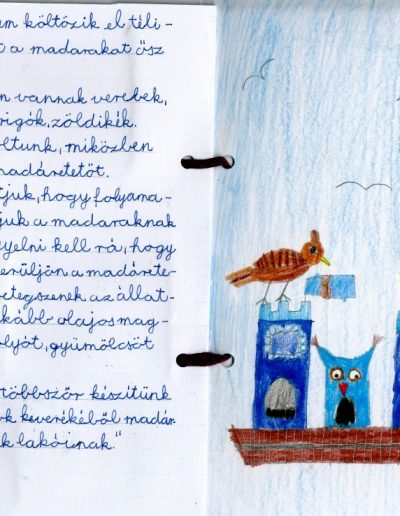 em költözik el téli-
t a madarakat ősz
n vannak verebek,
rigók, zöldikék.
oltunk, miközben
madáretetőt.
tjuk, hogy folyama-
juk a madaraknak
gyelni kell rá, hogy
erüljön a madárete-
etegszenek az állat-
kább olajos mag-
olyót, gyümölcsöt
többször készítünk
ok keverékéből madár-
k lakóinak."